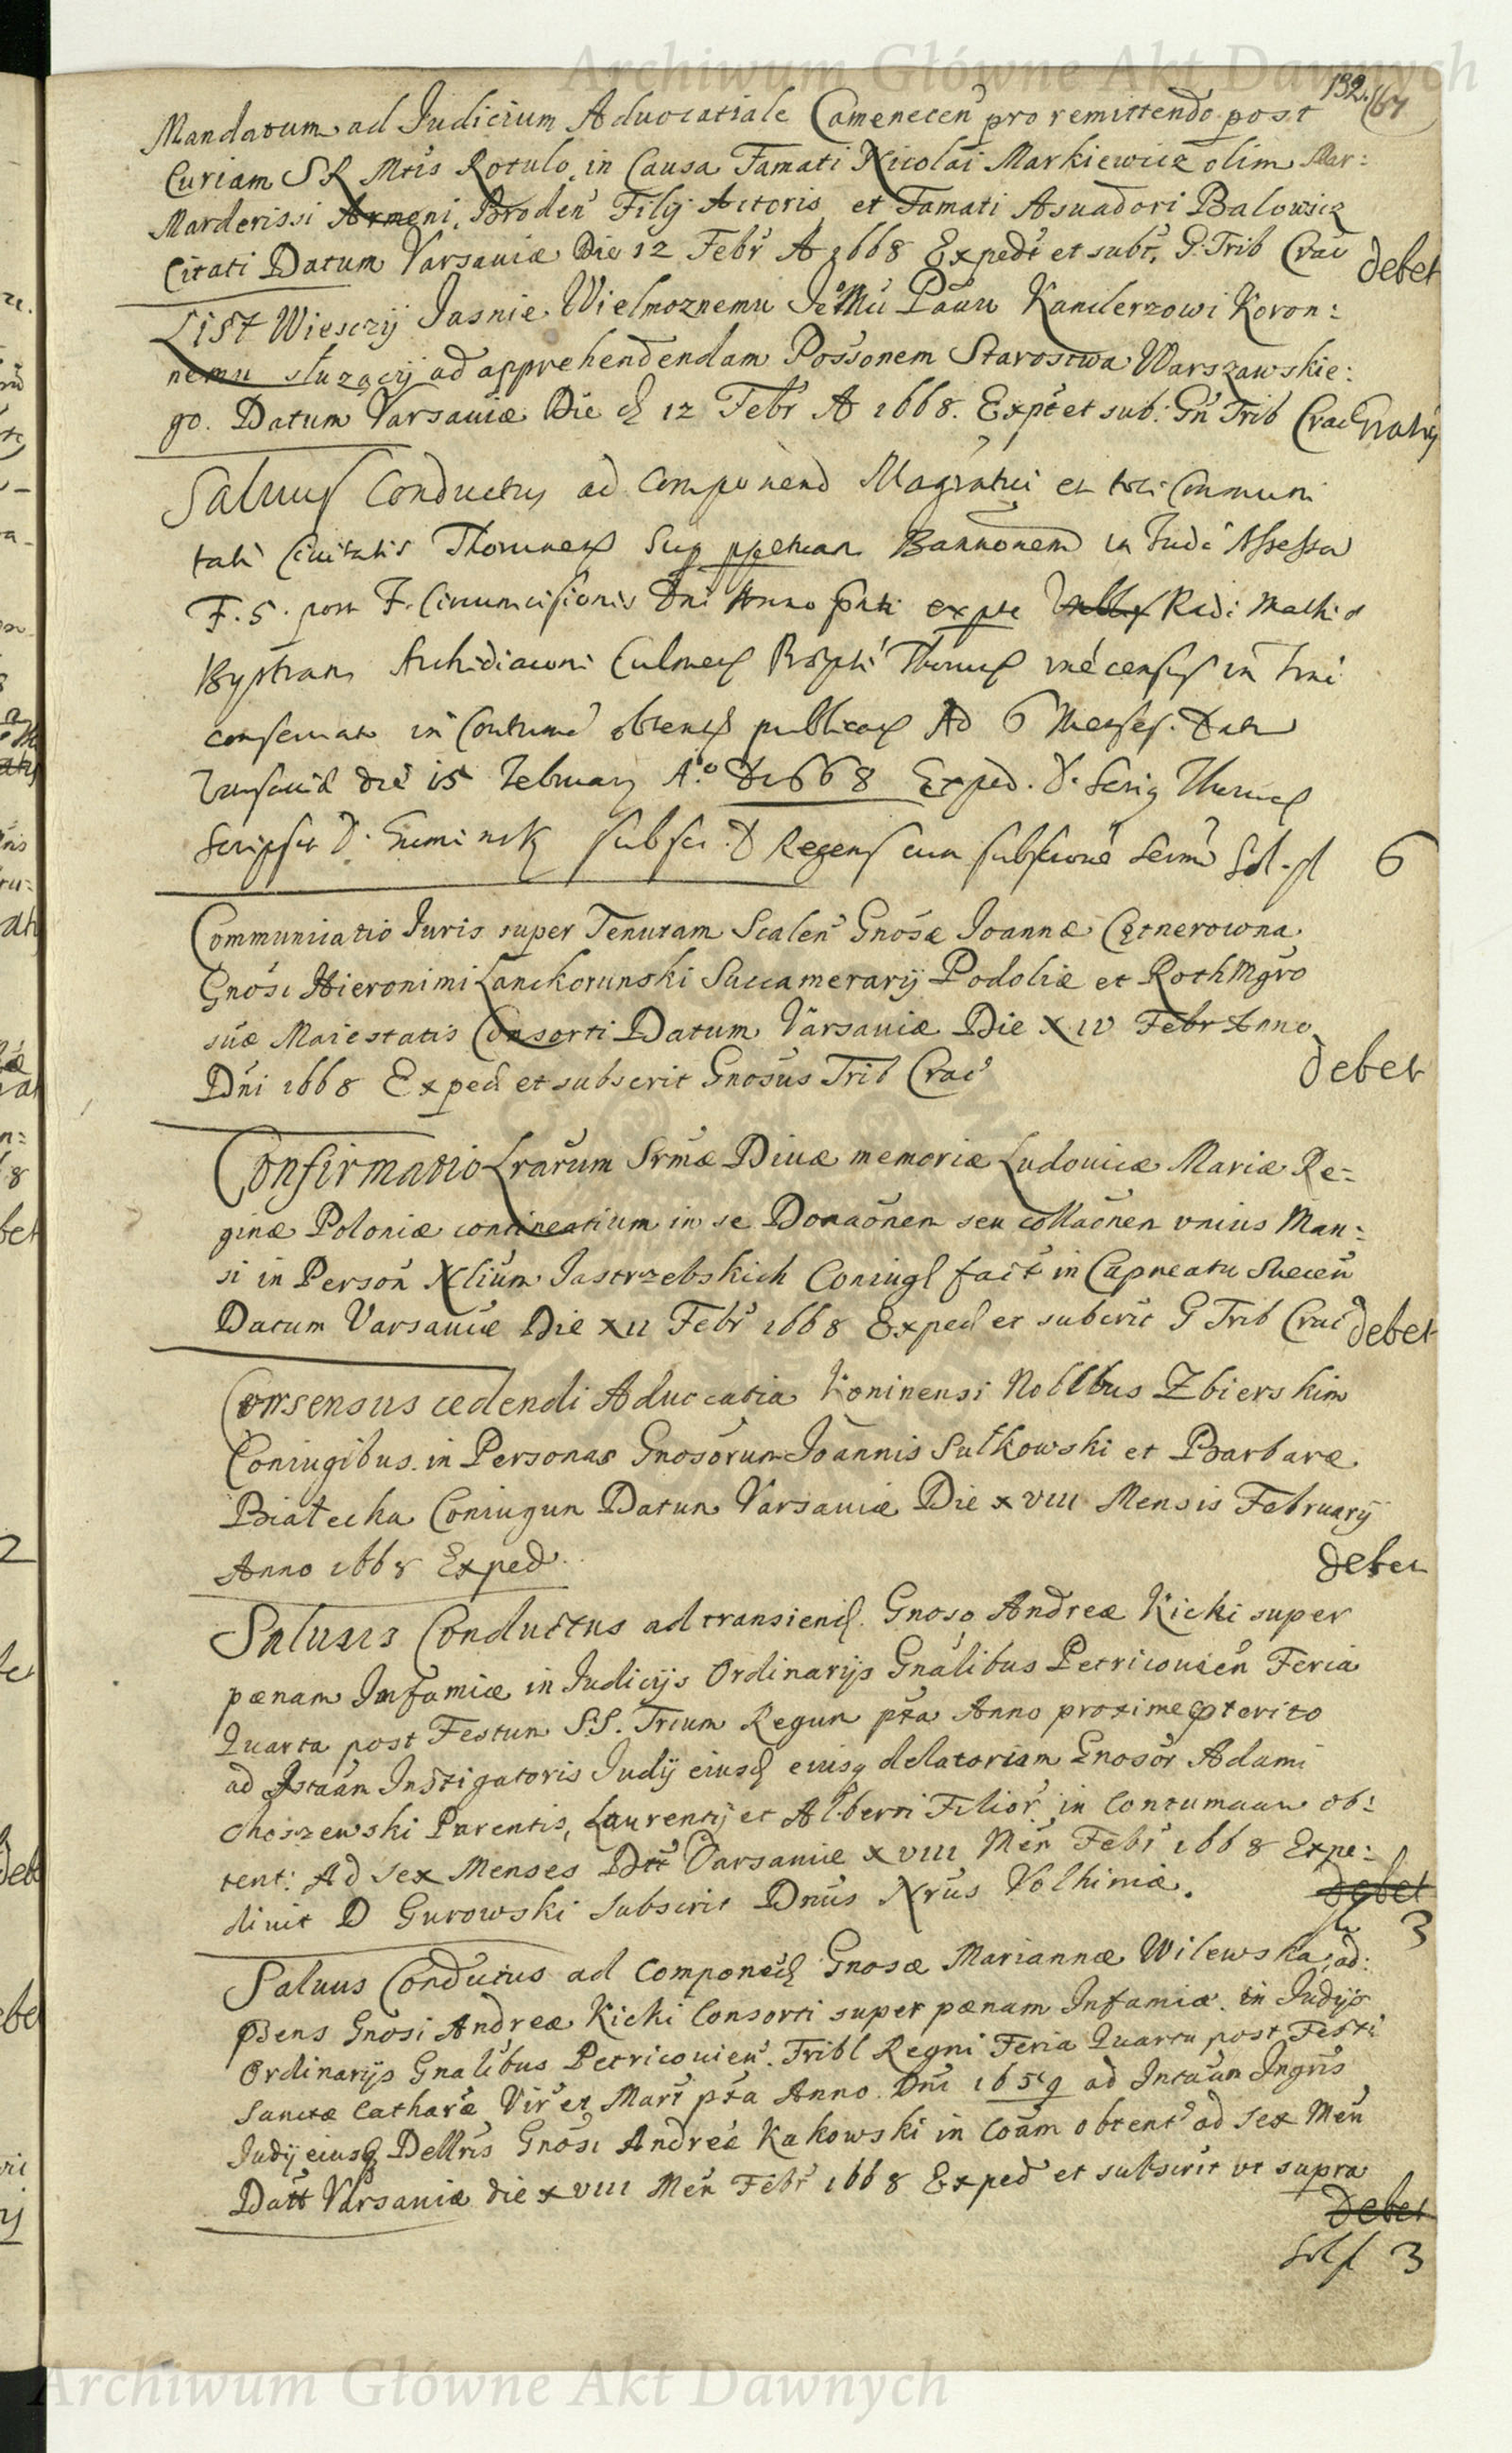 Archiwum Główne Akt Dawnych
132. 67
Mandatum ad Judicium Aduocatiale Camenecen̄ pro remittendo post
Curiam S R Mtis Rotulo, in Causa Famati Nicolai Markiewicz olim Mar:
Marderissi Armeni, Broden̄ Filij Actoris et Famati Asuadori Balowicz
Citati Datum Varsauiæ Die 12 Febr̄ A 1668 Exped̄t et subt, G: Trib Crac̄ debet
List Wiesczij Jasnie Wielmoznemu Je̊Mu Panu Kanclerzowi Koron:
nemu słuzącij ad apprehendendam Possonem Starostwa Warszawskie:
go. Datum Varsauiæ Die 12 Febr̄ A 1668. Expt et sub: Gn̄ Trib Crac Gratis
Saluus Conductus ad Componend Magratui et toti Communi
tati Ciuitatis Thorunen Sup ppetuam Bannonem in Judi Assessa
F. 5. post F. Circumcisionis Dni Anno pnti ex pte Rndi Mathiæ
Bystram Archidiaconi Culmen Præpti Thorun
conseruat in Contuma obtent publicat Ad 6 Menses. Datu
Varsauiæ die 15 February A.o D 1668 Exped. D. Thorunen
Scripsit D. Guminsk subscr. D Regens cum subscrione Sol. fl 6
Communicatio Juris super Tenutam Scalen̄ Gnosæ Joannæ Cetnerowna
Gnosi Hieronimi Lanckorunski Succamerarij Podoliæ et RothMgro
suæ Maiestatis Consorti Datum Varsauiæ Die X IV Febr Anno
Dn̄i 1668 Exped et subscrit Gnosus Trib Crac̄ debet
Confirmatio Lrarum Srmæ Diuæ memoriæ Ludouicæ Mariæ Re=
ginæ Poloniæ continentium in se Donaōnem seu collaōnem vnius Man:
si in Person̄ Nlium Jastrzebskich Coniugl fact in Capneatu Suecen̄
Datum Varsauiæ Die XII Febr̄ 1668 Exped et subcrit G Trib Crac debet
Consensus cedendi Aduocatia Koninensi Nollbus Zbierskim
Coniugibus in Personas Gnosorum Joannis Sułkowski et Barbaræ
Białecka Coniugum Datum Varsauiæ Die XVIII Mensis Februarij
Anno 1668 Exped debet
Saluus Conductus ad transiend. Gnoso Andreæ Kicki super
pœnam Infamiæ in Judicijs Ordinarijs Gnalibus Petricouien̄ Feria
Quarta post Festum S.S. Trium Regum pta Anno proxime pterito
ad Jstāam Instigatoris Judij eiusd eiusq delatoriam Gnosor Adami
Choszewski Parentis, Laurentij et Alberti Filior̄ in Contumaam ob:
tent: Ad sex Menses Dtt Varsauiæ XVIII Men̄ Febr̄ 1668 Expe:
diuit D Gurowski Subscrit Dn̄us Nrus Volhiniæ. debet
3
Saluus Conductus ad Componed Gnosæ Mariannæ Wilewska, ad:
psens Gnosi Andreæ Kicki Consorti super pœnam Infamiæ in Judijs
Ordinarijs Gnalibus Petricouien̄. Tribl Regni Feria Quarta post Festi
Sanctæ Catharæ Vir et Mart pta Anno Dni 1659 ad Instāam Ingris
Judij eiusq Dellris Gnosi Andreæ Kakowski in Coam obtent ad sex Men̄
Datt Varsauiæ die XVIII Men̄ Febr̄ 1668 Exped et subscrit vt supra
Debet
Sol fl 3
Archiwum Główne Akt Dawnych